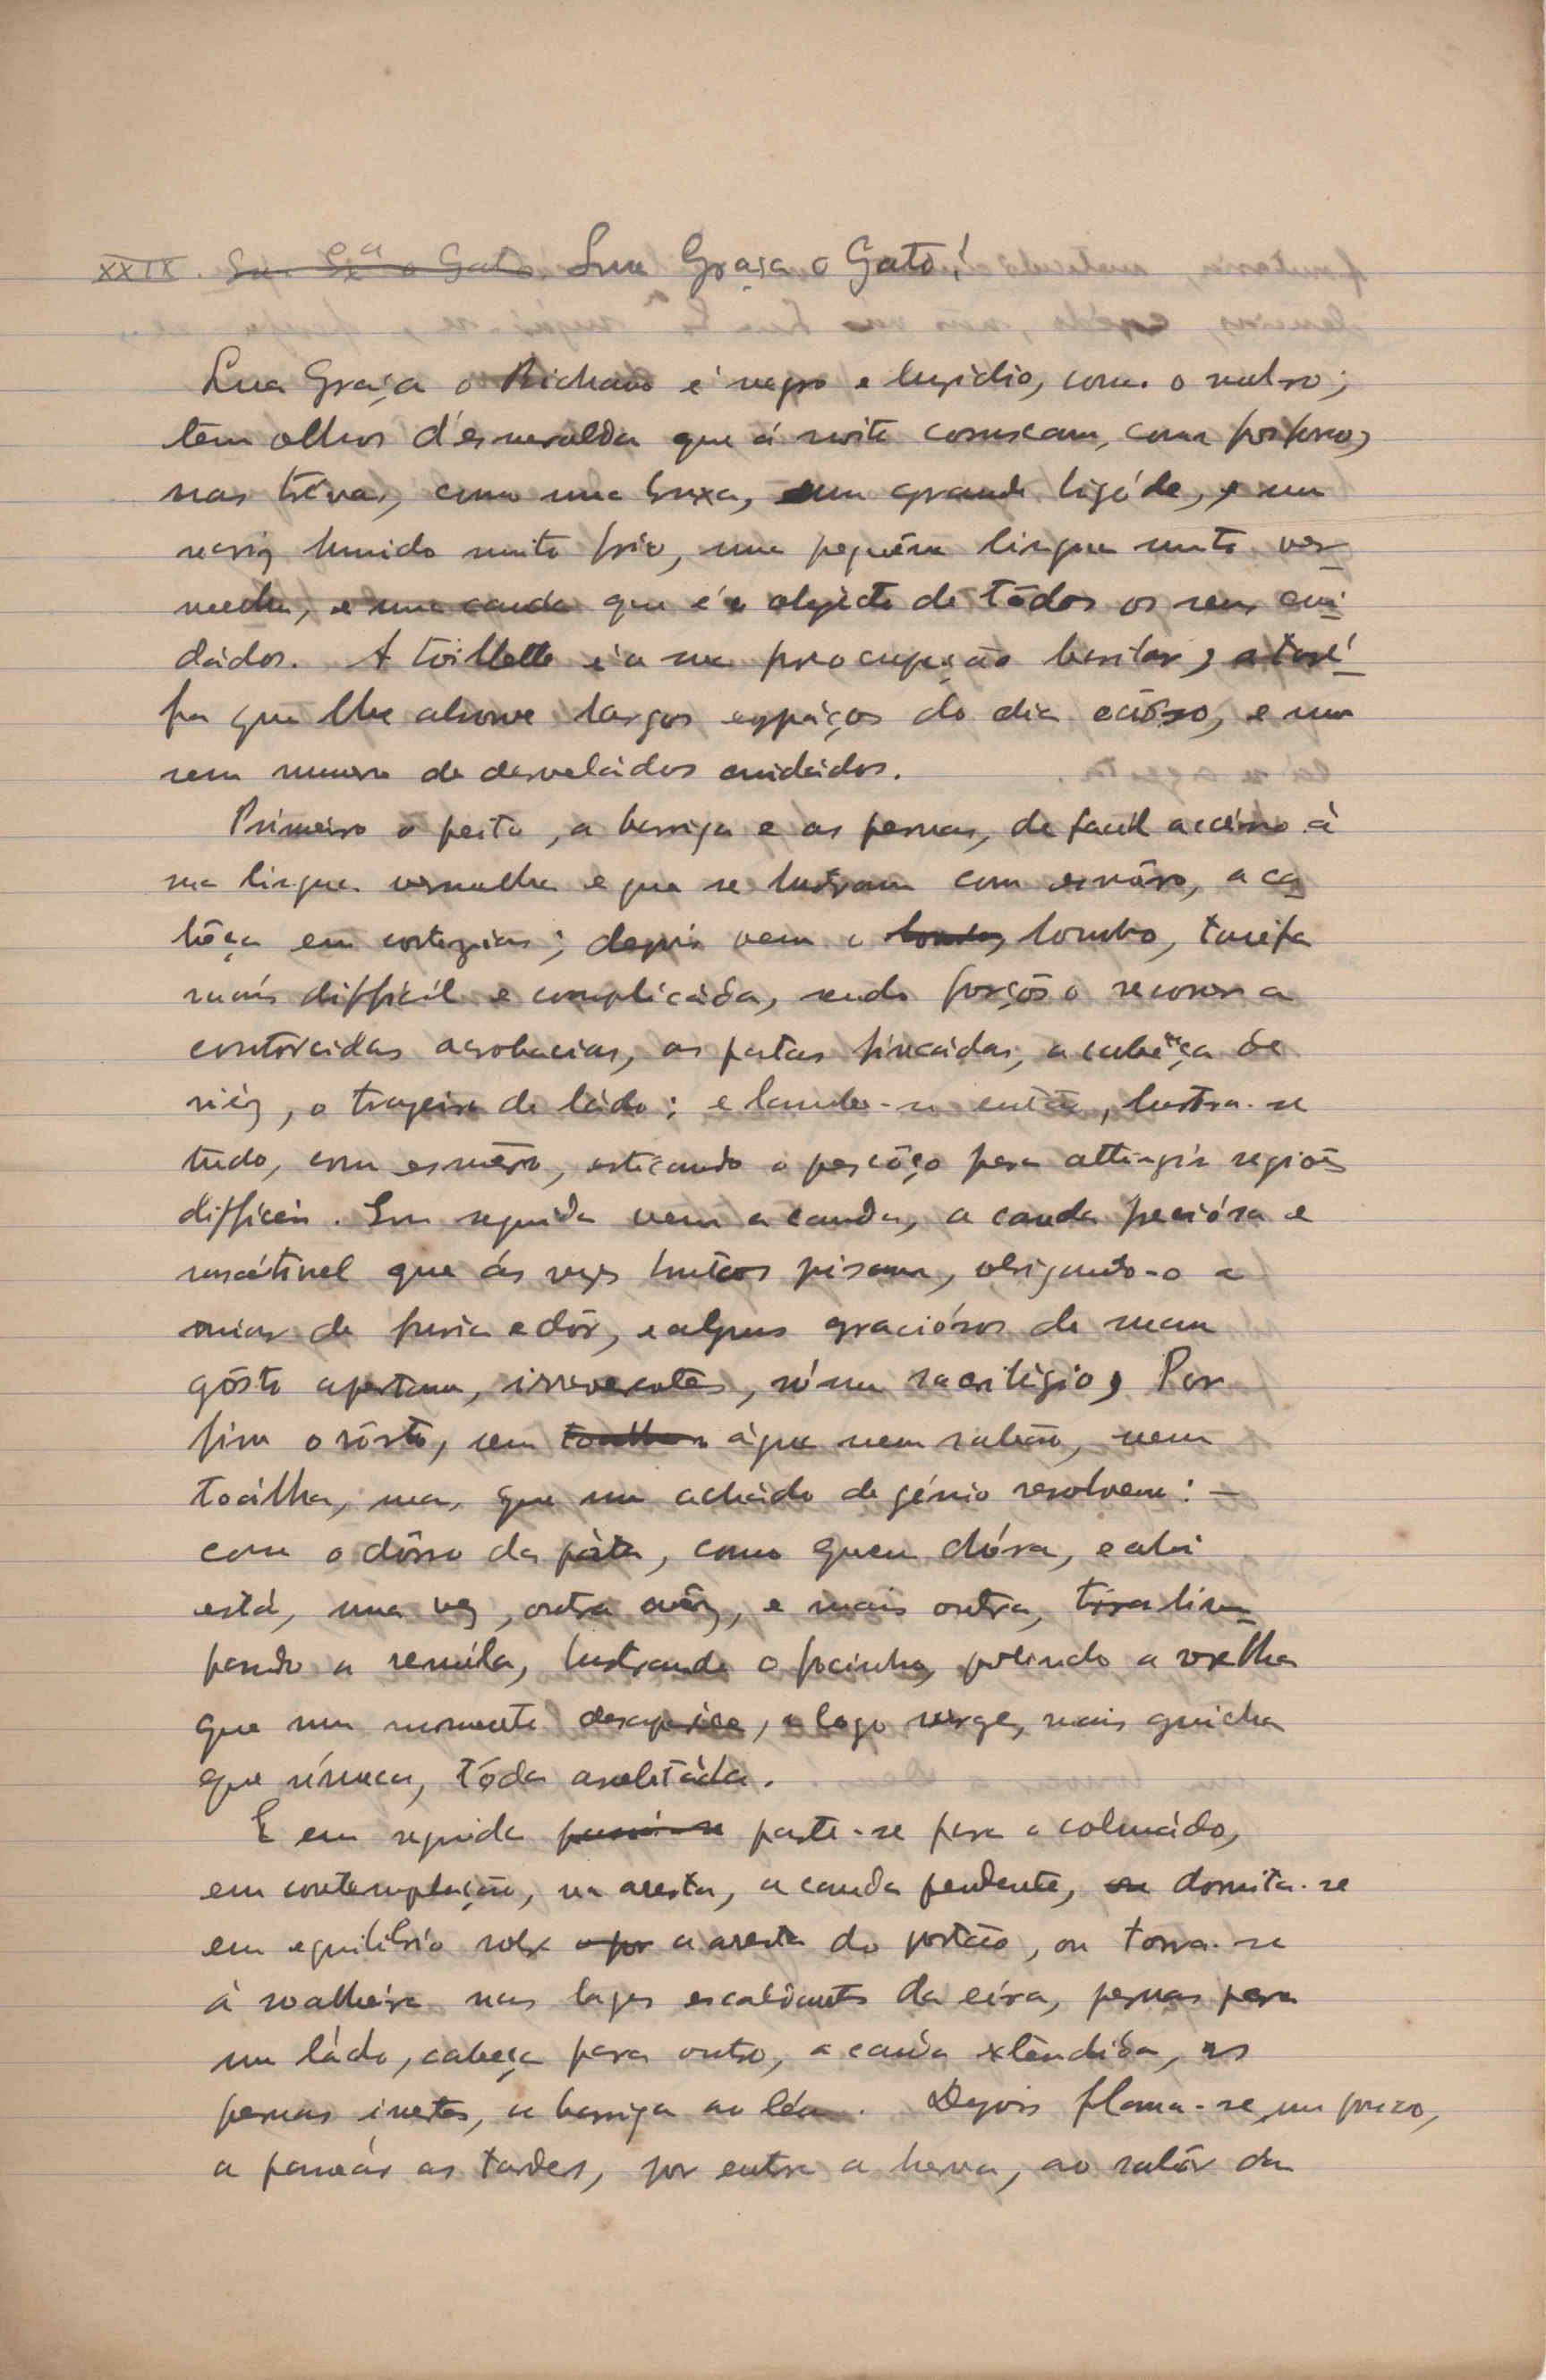 XXIX. Sua Exª o Gato. Sua Graça o Gato!
Sua Graça o Bichano é negro e luzidio, como o outro;
tem olhos d'esmeralda que á noite coruscam, como fosforo,
nas trévas, como uma bruxa, um grande bigóde, e um
nariz humido muito frio, uma pequêna lingua muito ver-
melha, e uma cauda que é o objécto de tôdos os seus cui-
dádos. A toillette é a sua preocupação basilar, a taré-
fa que lhe absorve largos espáços do dia ocioso, e um
sem numero de desveládos cuidádos.
Primeiro o peito, a barriga e as pernas, de facil accésso á
sua lingua vermelha e que se lustram com esmêro, a ca-
bêça em cortezias; depois vem o lombo, lombo, tarefa
mais difficil e complicáda, sendo forçôso recorrer a
contorcidas acrobacias, as patas fincádas, a cabêça de
viéz, o trazeiro de ládo; e lambe-se então, lustra-se
tudo, com esmêro, esticando o pescôço para attingir regiões
difficeis. Em seguida vem a cauda, a cauda preciósa e
susceptivel que ás vezes brutos pisam, obrigando-o a
miar de furia e dôr, e alguns graciósos de mau
gôsto apertam, irreverentes, n'um sacrilégio, Por
fim o rôsto, sem toalha água nem sabão, nem
toálha, mas que um achádo de génio resolveu: —
com o dôrso da páta, como quem chóra, e ahi
está, uma vez, outra vêz, e mais outra, tira lim-
pando a remúla, lustrando o focinho, polindo a orelha
que um momento desaparece, e logo surge, mais guicha
que núnca, tôda assetáda.
E em seguida parte-se para o colmádo,
em contemplação, na aresta, a cauda pendente, ou dormita-se
em equilibrio sobre a aresta do portão, ou torra-se
á soalheira nas lages escaldantes da eira, pernas para
um ládo, cabeça para outro, a cauda extendida, as
pernas inertes, a barriga ao léu. Depois flana-se, um pouco,
a passar as tardes, por entre a herva, ao sabôr da